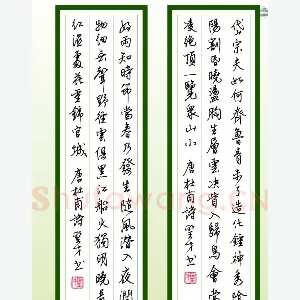 岱宗夫如何齊魯青未了造化鍾神秀陰
陽割昏曉盪胸生層雲決眥入歸鳥會當
凌絕頂一覽眾山小 唐杜甫詩
好雨知時節當春乃發生隨風潛入夜潤
物細無聲野徑雲俱黑江船火獨明曉看
紅濕處花重錦官城 唐杜甫詩